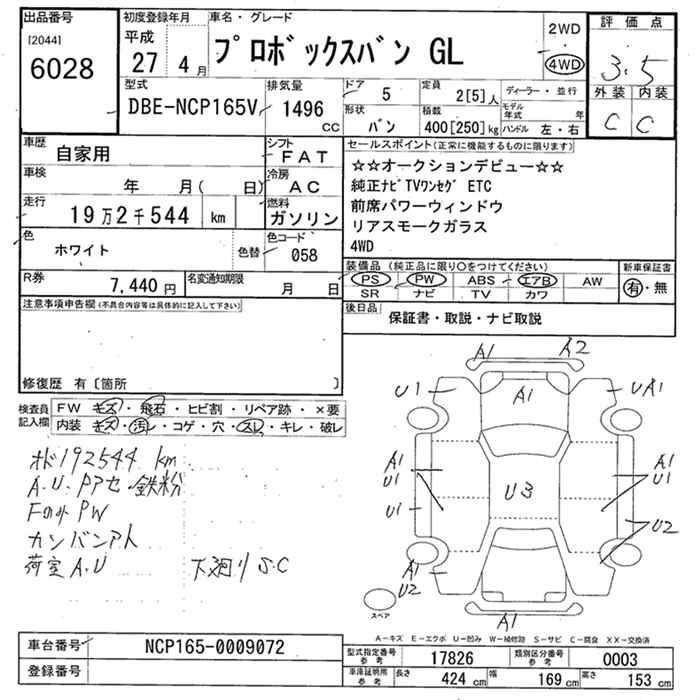 出品番号
[2044]
6028
初度登録年月
平成
27 4月
車名・グレード
プロボックスバン GL
2WD
4WD
評価点
3.5
外装 内装
C C
型式
DBE-NCP165V
排気量
1496
CC
ドア
5
定員
2[5]人
形状
バン
積載
400[250]kg
ディーラー・並行
モデル年式 年
ハンドル 左・右
車歴
自家用
シフト
FAT
車検
年 月( 日)
冷房
AC
走行
19万2千544 km
燃料
ガソリン
色
ホワイト
色替
色コード
058
R券
7,440円
名変通知期限
月 日
セールスポイント(正常に機能するものに限ります)
☆☆オークションデビュー☆☆
純正ナビTVワンセグ ETC
前席パワーウィンドウ
リアスモークガラス
4WD
装備品 (純正品に限り○をつけてください)
PS PW ABS エアB AW
SR ナビ TV カワ
新車保証書
有・無
後日品
保証書・取説・ナビ取説
注意事項申告欄(不具合内容等は具体的に記入して下さい)
修復歴 有〔箇所 〕
検査員記入欄
FW キズ・飛石・ヒビ割・リペア跡・×要
内装 キズ・汚レ・コゲ・穴・スレ・キレ・破レ
オド192544 km
A.U.PアセE・鉄粉
FのみPW
カンバンアト
荷室A.U
下廻りS.C
A1 A2
U1 A1 UA1
A1
U1
A1
U1
U1 U3
U2
A1
U2
A1
スペア
A-キズ E-エクボ U-凹み W-補修跡 S-サビ C-腐食 XX-交換済
車台番号
NCP165-0009072
登録番号
型式指定番号
参考
17826
類別区分番号
参考
0003
車庫証明用
参考
長さ
424 cm
幅
169 cm
高さ
153 cm